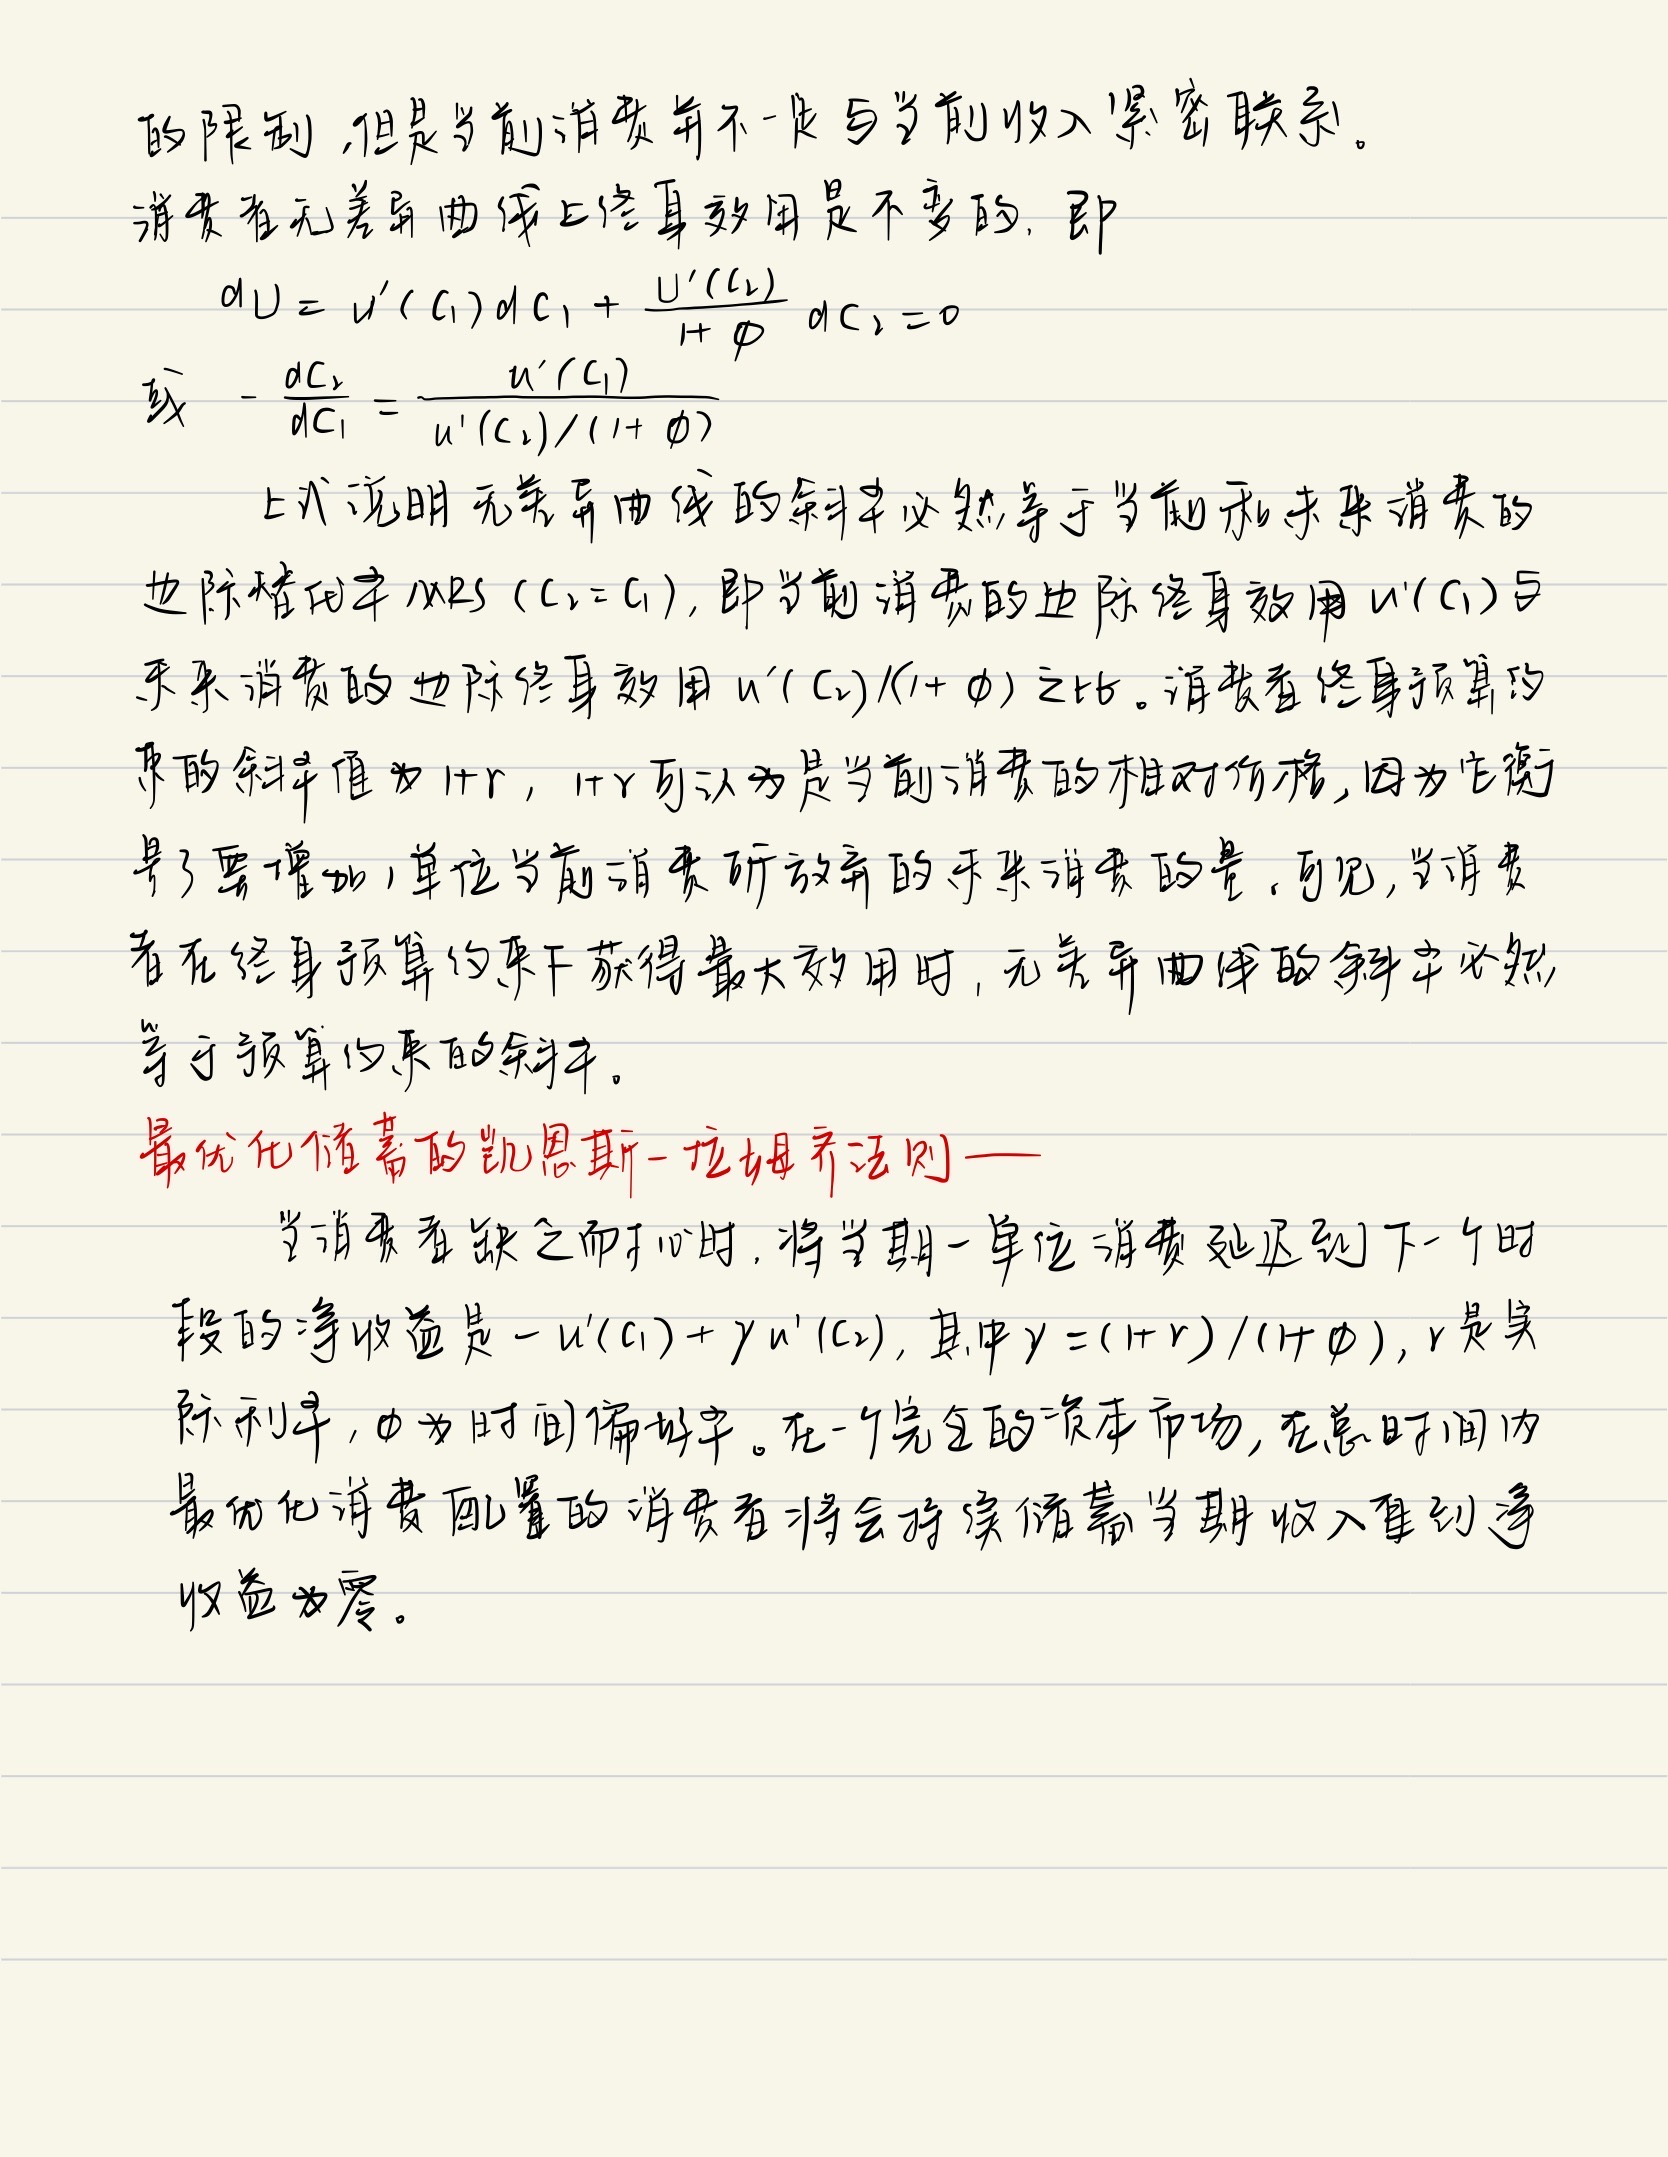 的限制,但是当前消费并不一定与当前收入紧密联系。
消费者无差异曲线上终身效用是不变的,即
dU = u'(C₁)dC₁ + U'(C₂)/(1+φ) dC₂ = 0
或 - dC₂/dC₁ = u'(C₁)/(u'(C₂)/(1+φ))
上式说明无差异曲线的斜率必然等于当前和未来消费的
边际替代率MRS(C₂=C₁),即当前消费的边际终身效用u'(C₁)与
未来消费的边际终身效用u'(C₂)/(1+φ)之比。消费者终身预算约
束的斜率值为1+r,1+r可认为是当前消费的相对价格,因为它衡
量了要增加1单位当前消费所放弃的未来消费的量,可见,当消费
者在终身预算约束下获得最大效用时,无差异曲线的斜率必然
等于预算约束的斜率。
最优化储蓄的凯恩斯-拉姆齐法则——
当消费者缺乏耐心时,将当期一单位消费延迟到下一个时
段的净收益是-u'(C₁)+γu'(C₂),其中γ=(1+r)/(1+φ),r是实
际利率,φ为时间偏好率。在一个完全的资本市场,在总时间内
最优化消费配置的消费者将会持续储蓄当期收入直到净
收益为零。